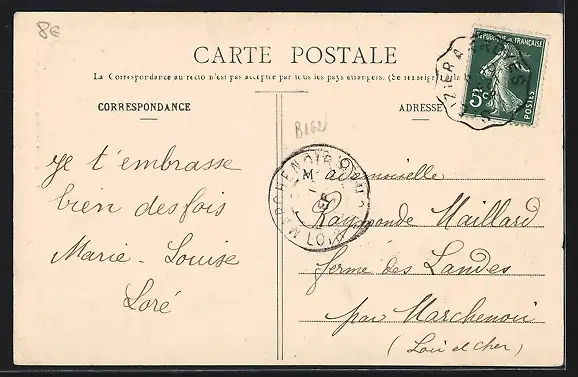 8€
CARTE POSTALE
La Correspondance au recto n'est pas acceptée par tous les pays étrangers. (Se renseigner à la
CORRESPONDANCE
ADRESSE
REPUBLIQUE FRANÇAISE
5c
POSTES
B162
MARCHENOIR
LOIR
je t'embrasse
bien des fois
Marie-Louise
Loré
Mademoiselle
Raymonde Maillard
ferme des Landes
par Marchenoir
(Loir et Cher)